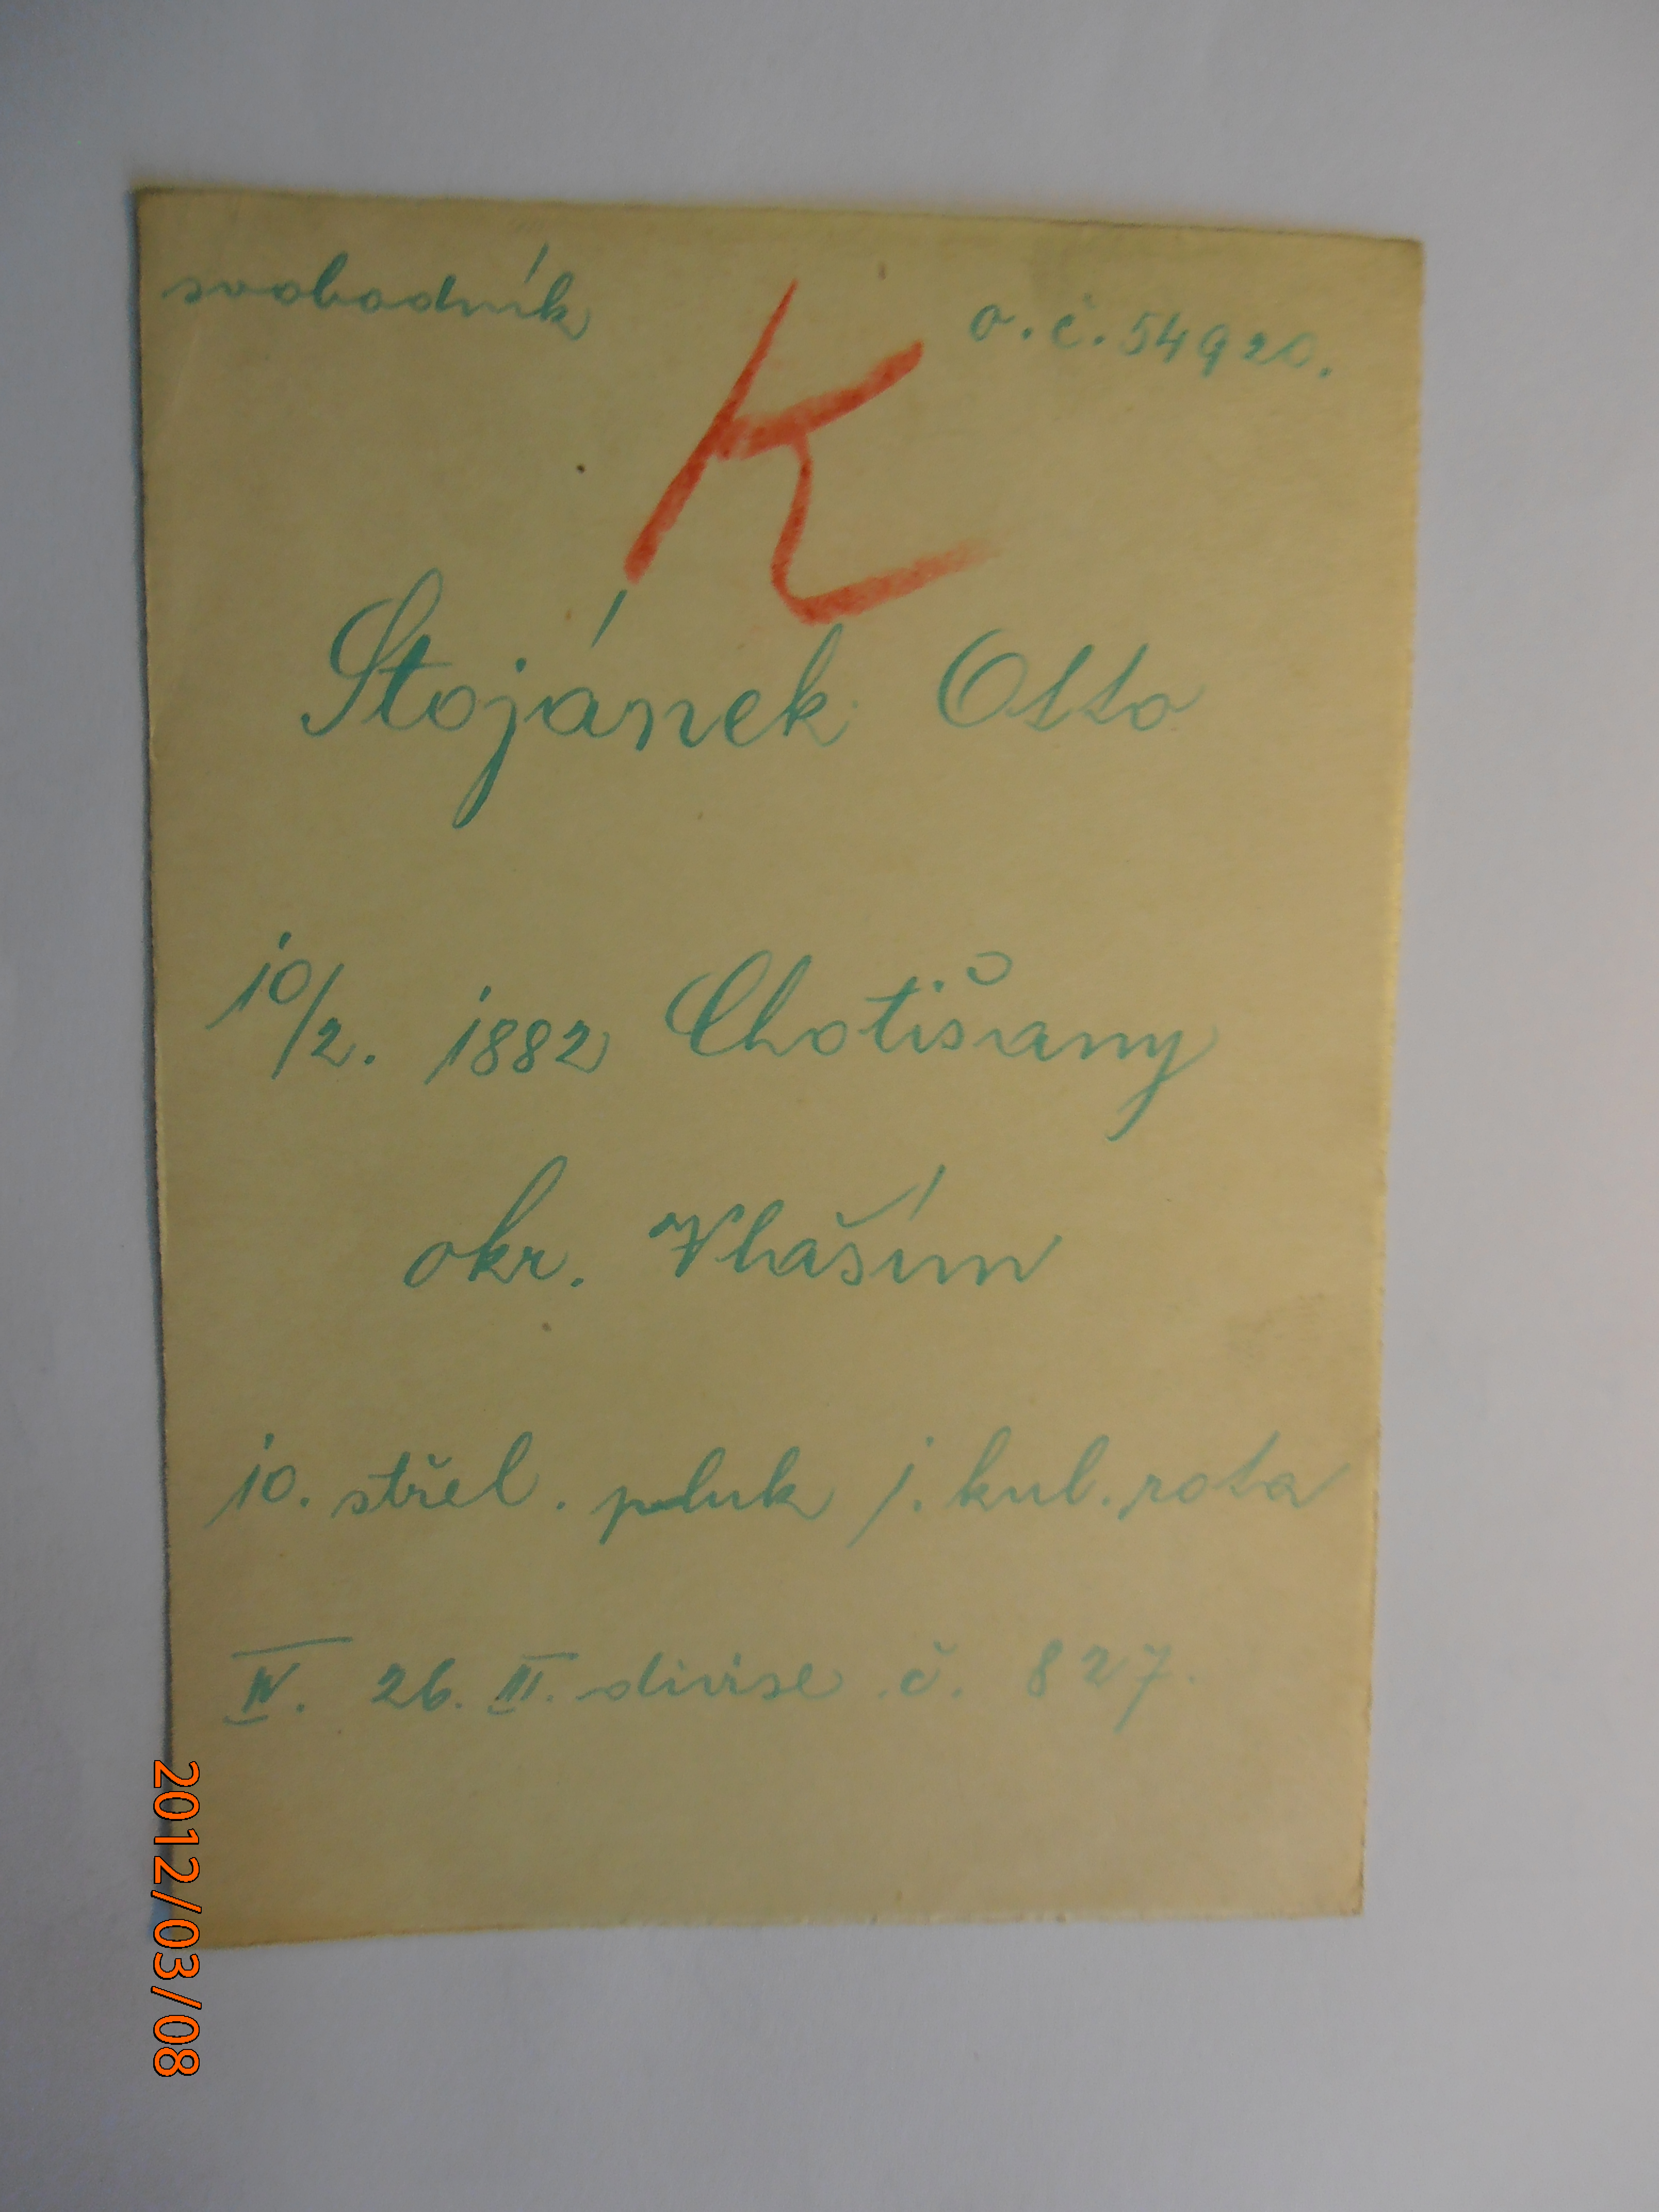 svobodník o.č. 54920.
K
Stojánek Otto
10/2. 1882 Chotišany
okr. Vlaším
10. střel. pluk j. kul. rota
IV. 26. III. divise č. 827.
2012/03/08